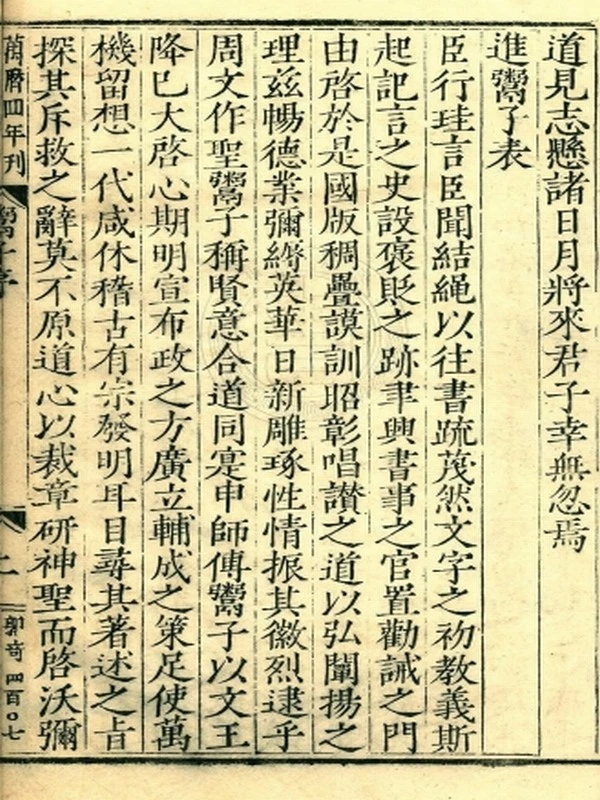 道見志懸諸日月將來君子幸無忽焉
進鬻子表
臣行珪言臣聞結繩以往書疏蔑然文字之初教義斯
起記言之史設褒貶之跡聿興書事之官置勸誡之門
由啓於是國版稠疊謨訓昭彰唱讃之道以弘闡揚之
理兹暢德業彌縟英華日新雕琢性情振其徽烈逮乎
周文作聖鬻子稱賢意合道同寔申師傅鬻子以文王
降已大啓心期明宣布政之方廣立輔成之策足使萬
機留想一代咸休稽古有宗發明耳目尋其著述之旨
探其斥救之辭莫不原道心以裁章研神聖而啓沃彌
萬曆四年刊
鬻子序
二
郭奇 四百〇七